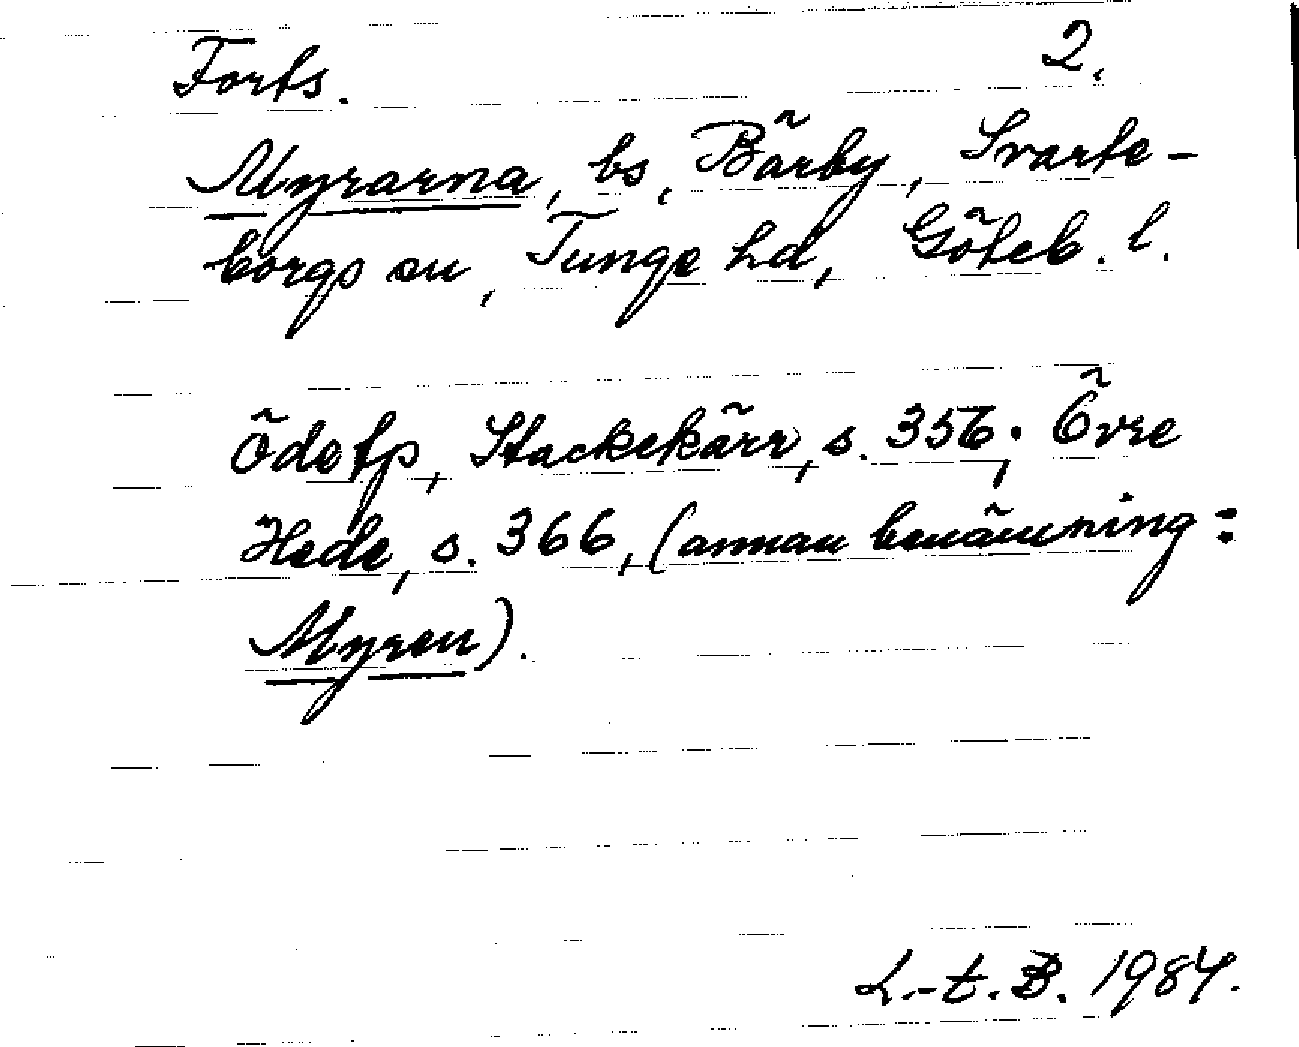 Forts. 2.
Myrarna, bs, Bärby, Svarte-
borgs sn, Tunge hd, Göteb. l.
Ödetp, Stackekärr, s. 356; Övre
Hede, s. 366, (annan benämning:
Myren).
L.-E. B. 1984.